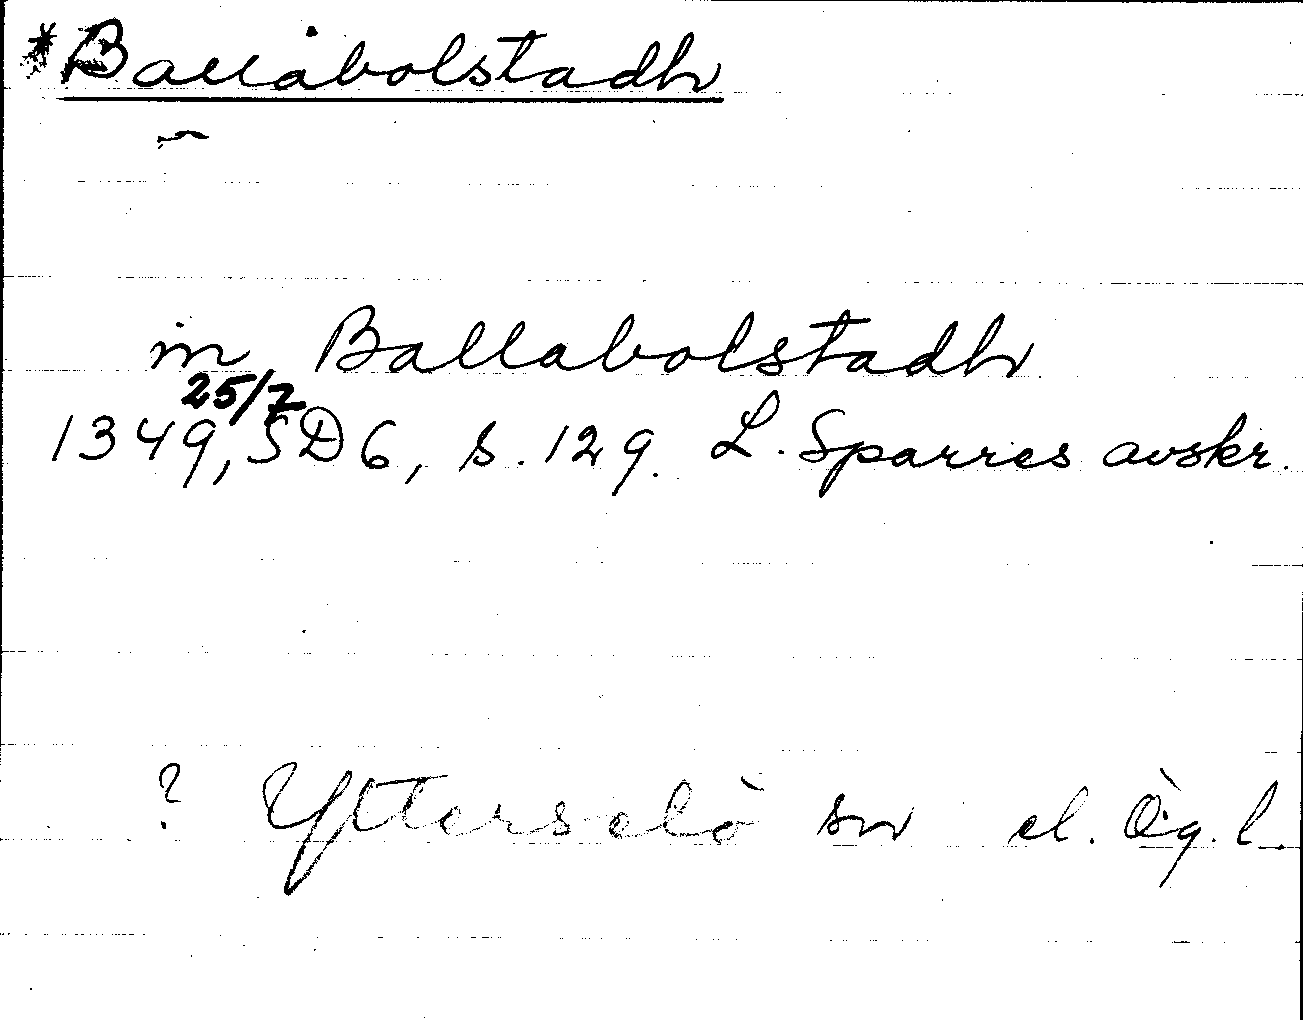 *Ballabolstadh
in Ballabolstadh
25/7
1349, SD6, s. 129. L. Sparres avskr.
? Ytterselö sn el. Ög. l.